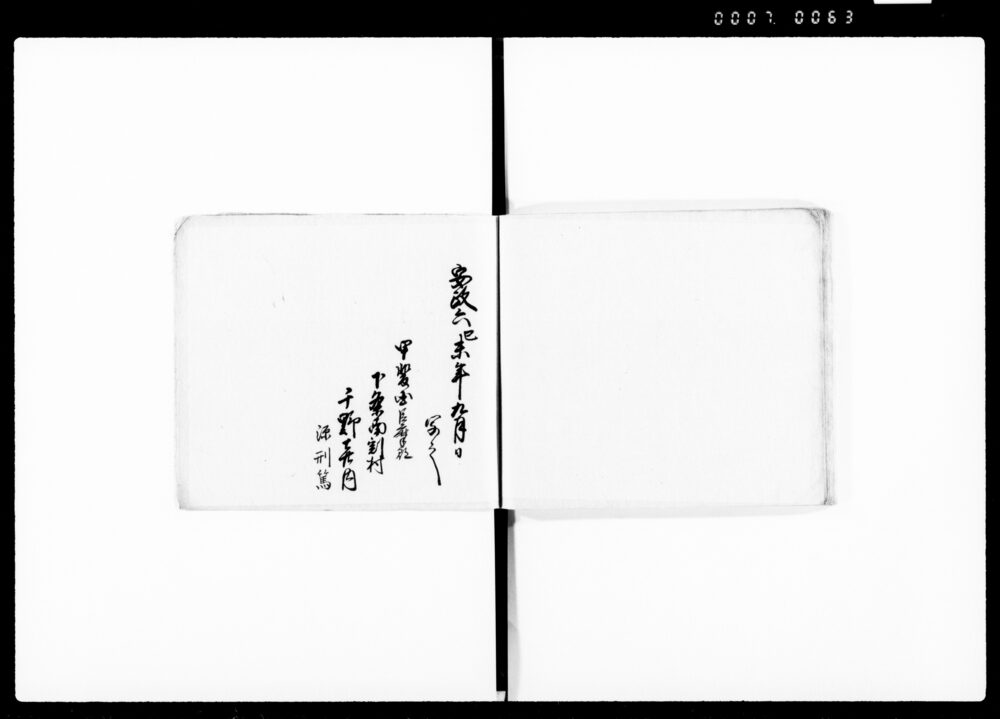 0007. 0063
安政六己未年九月日
写之
甲斐国巨摩郡
下条南割村
千野喜内
源刑篤